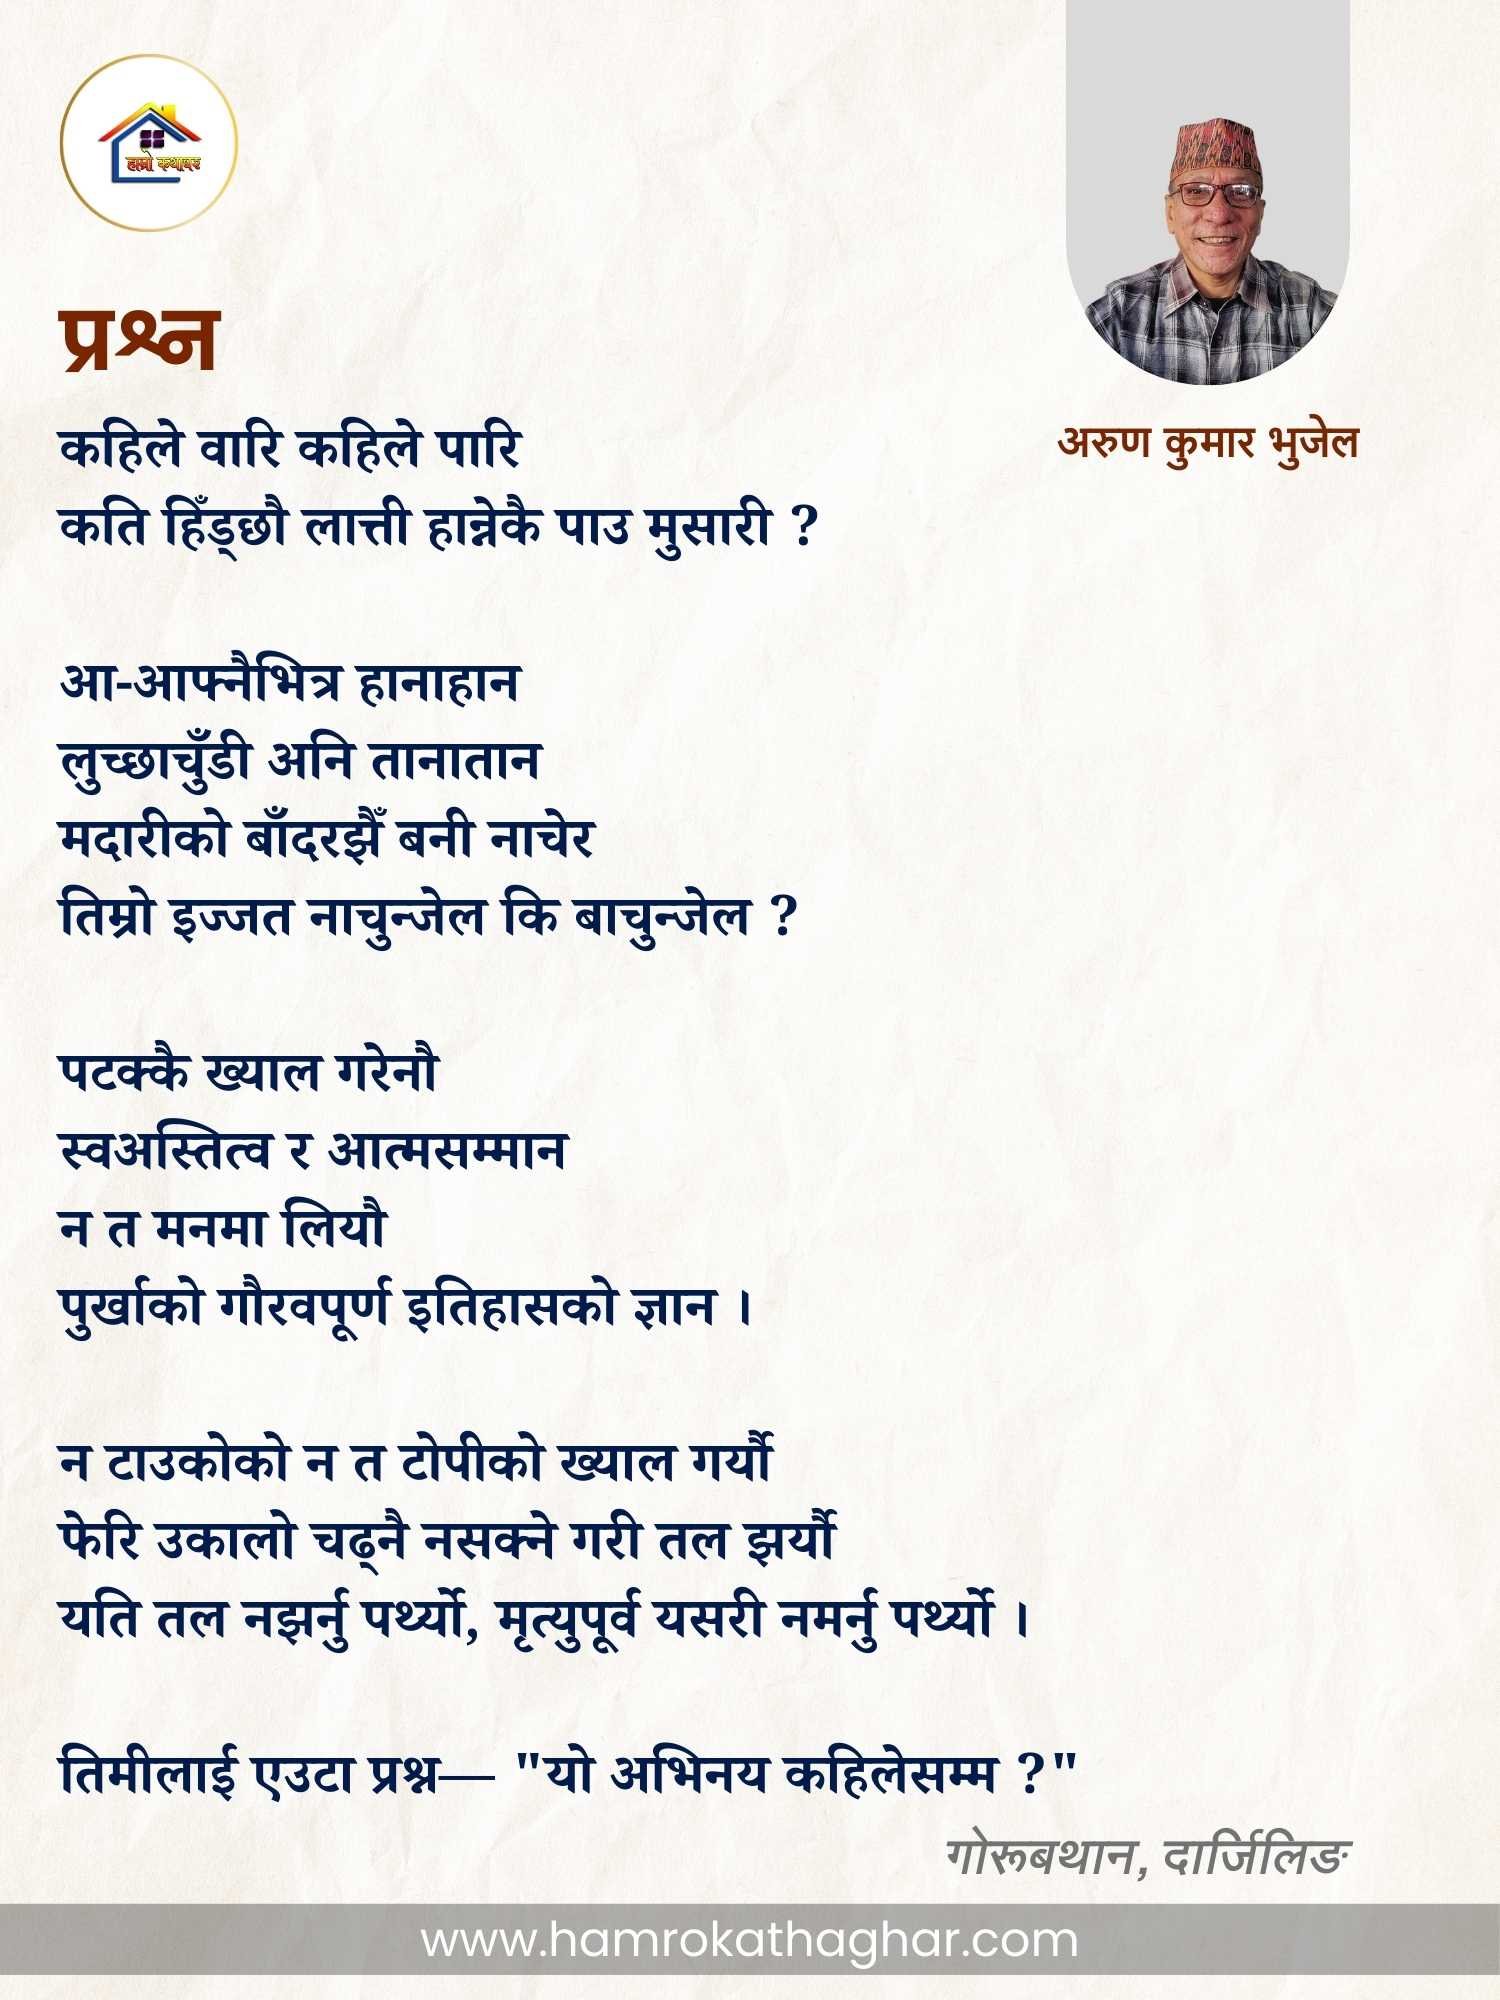 हाम्रो कथाघर
प्रश्न
अरुण कुमार भुजेल
कहिले वारि कहिले पारि
कति हिँड्छौ लात्ती हान्नेकै पाउ मुसारी ?
आ-आफ्नैभित्र हानाहान
लुच्छाचुँडी अनि तानातान
मदारीको बाँदरझैँ बनी नाचेर
तिम्रो इज्जत नाचुन्जेल कि बाचुन्जेल ?
पटक्कै ख्याल गरेनौ
स्वअस्तित्व र आत्मसम्मान
न त मनमा लियौ
पुर्खाको गौरवपूर्ण इतिहासको ज्ञान ।
न टाउकोको न त टोपीको ख्याल गर्यौ
फेरि उकालो चढ्नै नसक्ने गरी तल झर्यौ
यति तल नझर्नु पर्थ्यो, मृत्युपूर्व यसरी नमर्नु पर्थ्यो ।
तिमीलाई एउटा प्रश्न— "यो अभिनय कहिलेसम्म ?"
गोरूबथान, दार्जिलिङ
www.hamrokathaghar.com